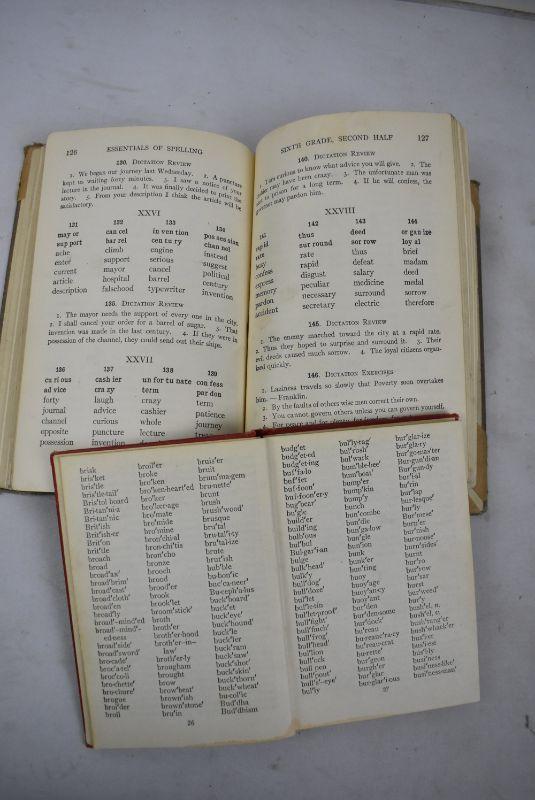 126 ESSENTIALS OF SPELLING
130. DICTATION REVIEW
1. We began our journey last Wednesday. 2. A puncture
kept us waiting forty minutes. 3. I saw a notice of your
lecture in the journal. 4. It was finally decided to print the
story. 5. From your description I think the article will be
satisfactory.
XXVI
131 132 133 134
may or can cel in ven tion pos ses sion
sup port bar rel cen tu ry chan nel
ache climb engine instead
enter support serious suggest
current mayor cancel political
article hospital barrel century
description falsehood typewriter invention
135. DICTATION REVIEW
1. The mayor needs the support of every one in the city.
2. I shall cancel your order for a barrel of sugar. 3. That
invention was made in the last century. 4. If they were in
possession of the channel, they could send out their ships.
XXVII
136 137 138 139
cu ri ous cash ier un for tu nate con fess
ad vice cra zy term par don
forty laugh crazy term
journal advice cashier patience
channel curious whole journey
opposite puncture lecture
possession invention
SIXTH GRADE, SECOND HALF 127
140. DICTATION REVIEW
I am curious to know what advice you will give. 2. The
may have been crazy. 3. The unfortunate man was
to prison for a long term. 4. If he will confess, the
governor may pardon him.
XXVIII
141 142 143 144
rap id thus deed or gan ize
rate sur round sor row loy al
rate thus brief
busy rapid defeat madam
confess disgust salary deed
express peculiar medicine medal
memory necessary surround sorrow
pardon secretary electric therefore
accident
145. DICTATION REVIEW
1. The enemy marched toward the city at a rapid rate.
2. Thus they hoped to surprise and surround it. 3. Their
evil deeds caused much sorrow. 4. The loyal citizens organ-
ized quickly.
146. DICTATION EXERCISES
1. Laziness travels so slowly that Poverty soon overtakes
him. — Franklin.
2. By the faults of others wise men correct their own.
3. You cannot govern others unless you can govern yourself.
briak broil'er bruis'er
bris'ket broke bruit
bris'tle bro'ken brum'ma-gem
bris'tle-tail' bro'ken-heart'ed bru-nette'
Bris'tol board bro'ker brunt
Bri-tan'ni-a bro'ker-age brush
Bri-tan'nic bro'mate brush'wood'
Brit'ish bro'mide brusque
Brit'ish-er bro'mine bru'tal
Brit'on bron'chi-al bru-tal'i-ty
brit'tle bron-chi'tis bru'tal-ize
broach bron'cho brute
broad bronze brut'ish
broad'ax' brooch bub'ble
broad'brim' brood bu-bon'ic
broad'cast' brood'er buc'ca-neer'
broad'cloth' brook Bu-ceph'a-lus
broad'en brook'let buck'board'
broad'ly broom'stick' buck'et
broad'-mind'ed broth buck'eye'
broad'-mind'ed-ness broth'er buck'hound'
broad'side' broth'er-hood buck'le
broad'sword' broth'er-in-law' buck'ler
bro-cade' broth'er-ly buck'ram
broc'a-tel' brougham buck'saw'
broc'co-li brought buck'shot'
bro-chette' brow buck'skin'
bro-chure' brow'beat' buck'thorn'
brogue brown'ish buck'wheat'
broi'der brown'stone' bu-col'ic
broil bru'in Bud'dha
Bud'dhism
26
budg'et bul'ly-rag' bur'glar-ize
budg'et-ed bul'rush' bur'gla-ry
budg'et-ing bul'wark bur'go-mas'ter
buf'fa-lo bum'ble-bee' Bur-gun'di-an
buf'fet bum'boat' Bur'gun-dy
buf-foon' bump'er bur'i-al
buf-foon'er-y bump'kin bu'rin
bug'bear' bump'y bur'lap
bu'gle bunch bur-lesque'
build'er bun'combe bur'ly
build'ing bun'dle Bur'mese'
bulb'ous bun'ga-low burn'er
bul'bul bun'gle bur'nish
Bul-gar'i-an bun'ion bur-noose'
bulge bunk burn'sides'
bulk'head' bunk'er burnt
bulk'y bun'ting bur'ro
bull'dog' buoy bur'row
bull'doze' buoy'age bur'sar
bul'let buoy'an-cy burst
bul'le-tin buoy'ant bur'weed'
bul'let-proof' bur'den bur'y
bull'fight' bur'den-some bush'el, n.
bull'finch' bur'dock' bush'el, v.
bull'frog' bu'reau bush'rang'er
bull'head' bu-reauc'ra-cy bush'whack'er
bul'lion bu'reau-crat bus'ied
bull'ock bu-rette' bus'i-est
bull pen bur'geon bus'i-ly
bull'pout' burgh'er busi'ness
bull's'-eye' bur'glar busi'ness-like'
bul'ly bur-glar'i-ous busi'ness-man'
27